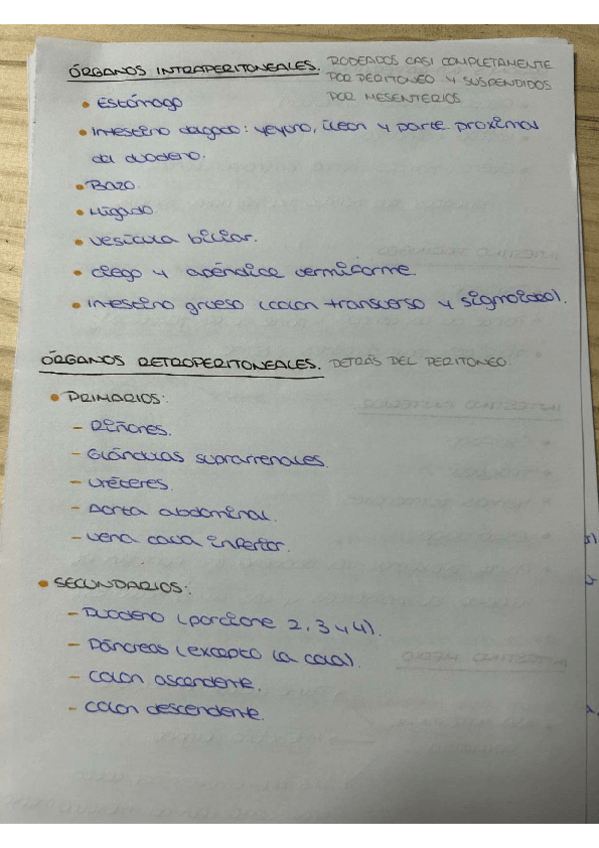 ÓRGANOS INTRAPERITONEALES. RODEADOS CASI COMPLETAMENTE
POR PERITONEO Y SUSPENDIDOS
POR MESENTERIOS
• Estómago
• Intestino delgado: yeyuno, íleon y parte proximal
del duodeno.
• Bazo.
• Hígado.
• Vesícula biliar.
• Ciego y apéndice vermiforme
• Intestino grueso (colon transverso y sigmoideo).
ÓRGANOS RETROPERITONEALES. DETRÁS DEL PERITONEO.
• PRIMARIOS:
– Riñones.
– Glándulas suprarrenales.
– Uréteres.
– Aorta abdominal.
– Vena cava inferior.
• SECUNDARIOS:
– Duodeno (porcione 2, 3 y 4).
– Páncreas (excepto la cola).
– Colon ascendente.
– Colon descendente.